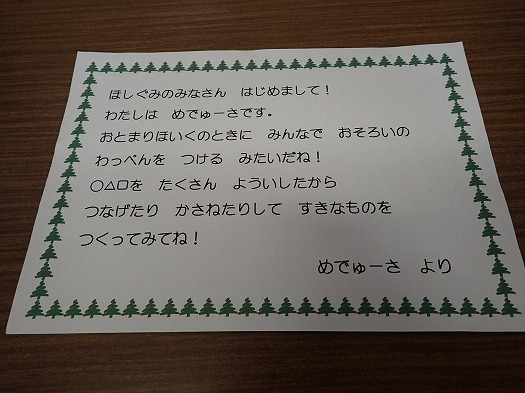 ほしぐみのみなさん　はじめまして！
わたしは　めでゅーさです。
おとまりほいくのときに　みんなで　おそろいの
わっぺんを　つける　みたいだね！
○△□を　たくさん　よういしたから
つなげたり　かさねたりして　すきなものを
つくってみてね！
めでゅーさ　より